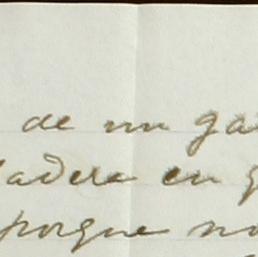 de un ga
adera en g
porque no